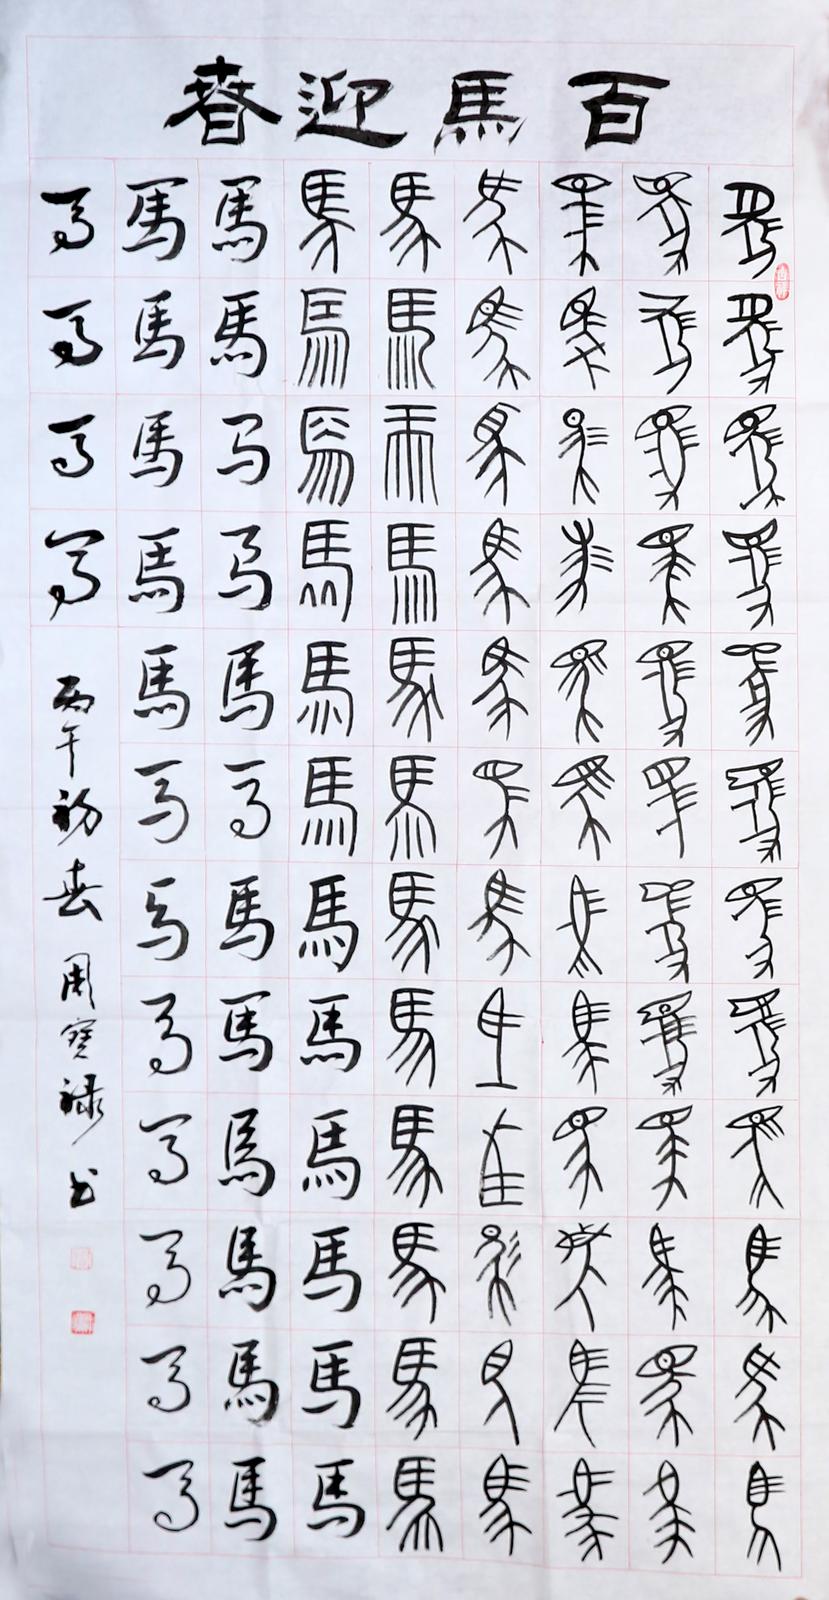 百馬迎春
馬馬馬馬馬馬馬馬馬馬馬馬
馬馬馬馬馬馬馬馬馬馬馬馬
馬馬馬馬馬馬馬馬馬馬馬馬
馬馬馬馬馬馬馬馬馬馬馬馬
馬馬馬馬馬馬馬馬馬馬馬馬
馬馬馬馬馬馬馬馬馬馬馬馬
馬馬马马馬马馬馬馬馬馬馬
馬馬馬馬馬马馬马马马马马
马马马马
丙午初春周寶禄书